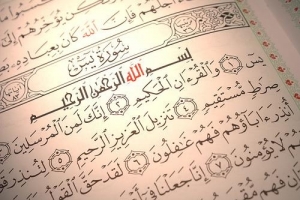 يؤخرهم إ
أجلهم فإن الله كان بعباده
سورة يس
بسم الله الرحمن الرحيم
يس ١ والقرءان الحكيم ٢ إنك لمن المرسلين
صرط مستقيم ٤ تنزيل العزيز الرحيم ٥ لتنذر
أنذر ءاباؤهم فهم غفلون ٦ لقد حق القول
لا يؤمنون ٧ إنا جعلنا في